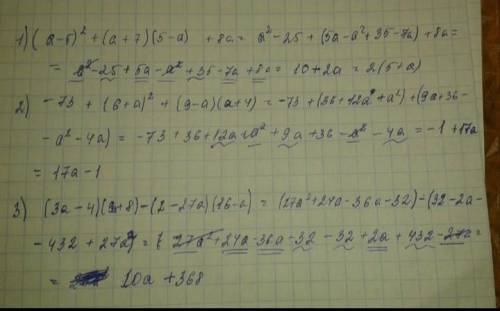 1) (a-5)² + (a+7)(5-a) + 8a = a²-25 + (5a-a²+35-7a) + 8a =
= a²-25+5a-a²+35-7a+8a = 10+2a = 2(5+a)
2) -73 + (6+a)² + (9-a)(a+4) = -73 + (36+12a+a²) + (9a+36-
-a²-4a) = -73+36+12a+a²+9a+36-a²-4a = -1+17a
= 17a-1
3) (3a-4)(9a+8)-(2-27a)(16-a) = (27a²+24a-36a-32)-(32-2a-
-432+27a²) = 27a²+24a-36a-32-32+2a+432-27a =
= 10a+368